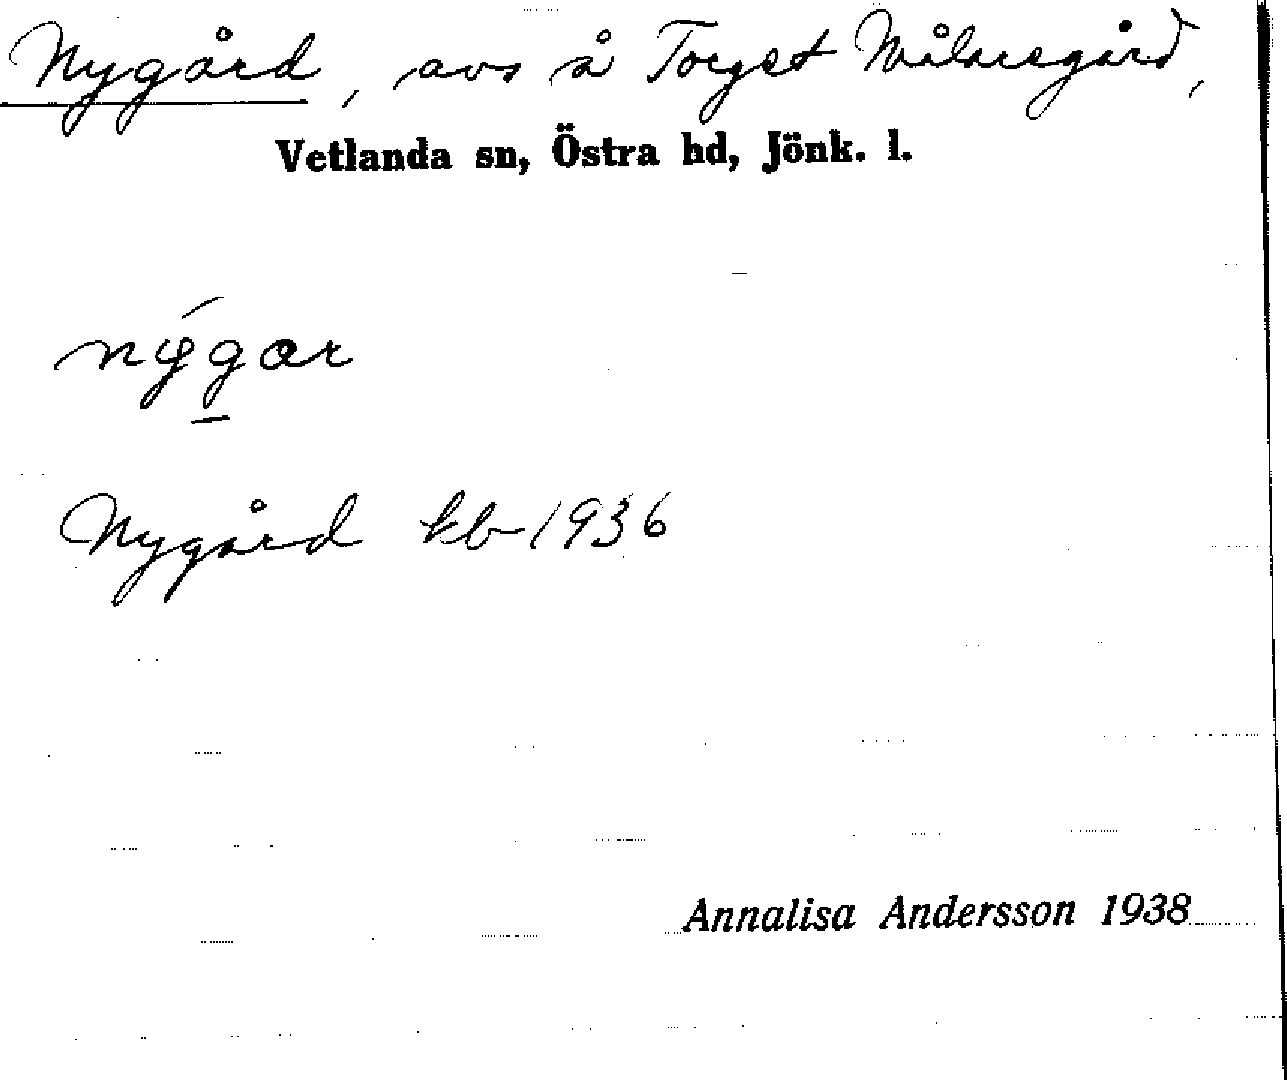 Nygård, avs å Torget Målaregård,
Vetlanda sn, Östra hd, Jönk. l.
nýgar
Nygård kb 1936
Annalisa Andersson 1938